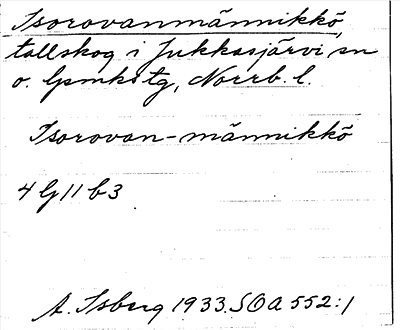 Isorovanmännikkö,
tallskog i Jukkasjärvi sn
o. lpmkstg, Norrb. l.
Isorovan-männikkö
4 G 11 b 3
A. Isberg 1933. SOA 552:1